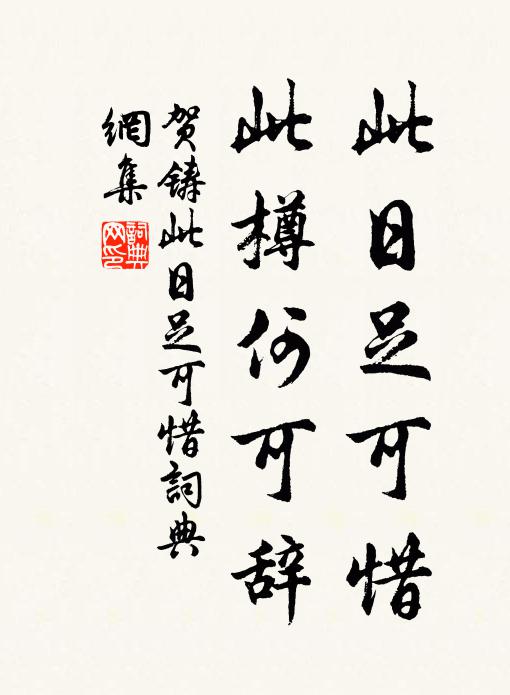 此日足可惜
此樽何可辞
贺铸此日足可惜詞典
網集
詞典
网印